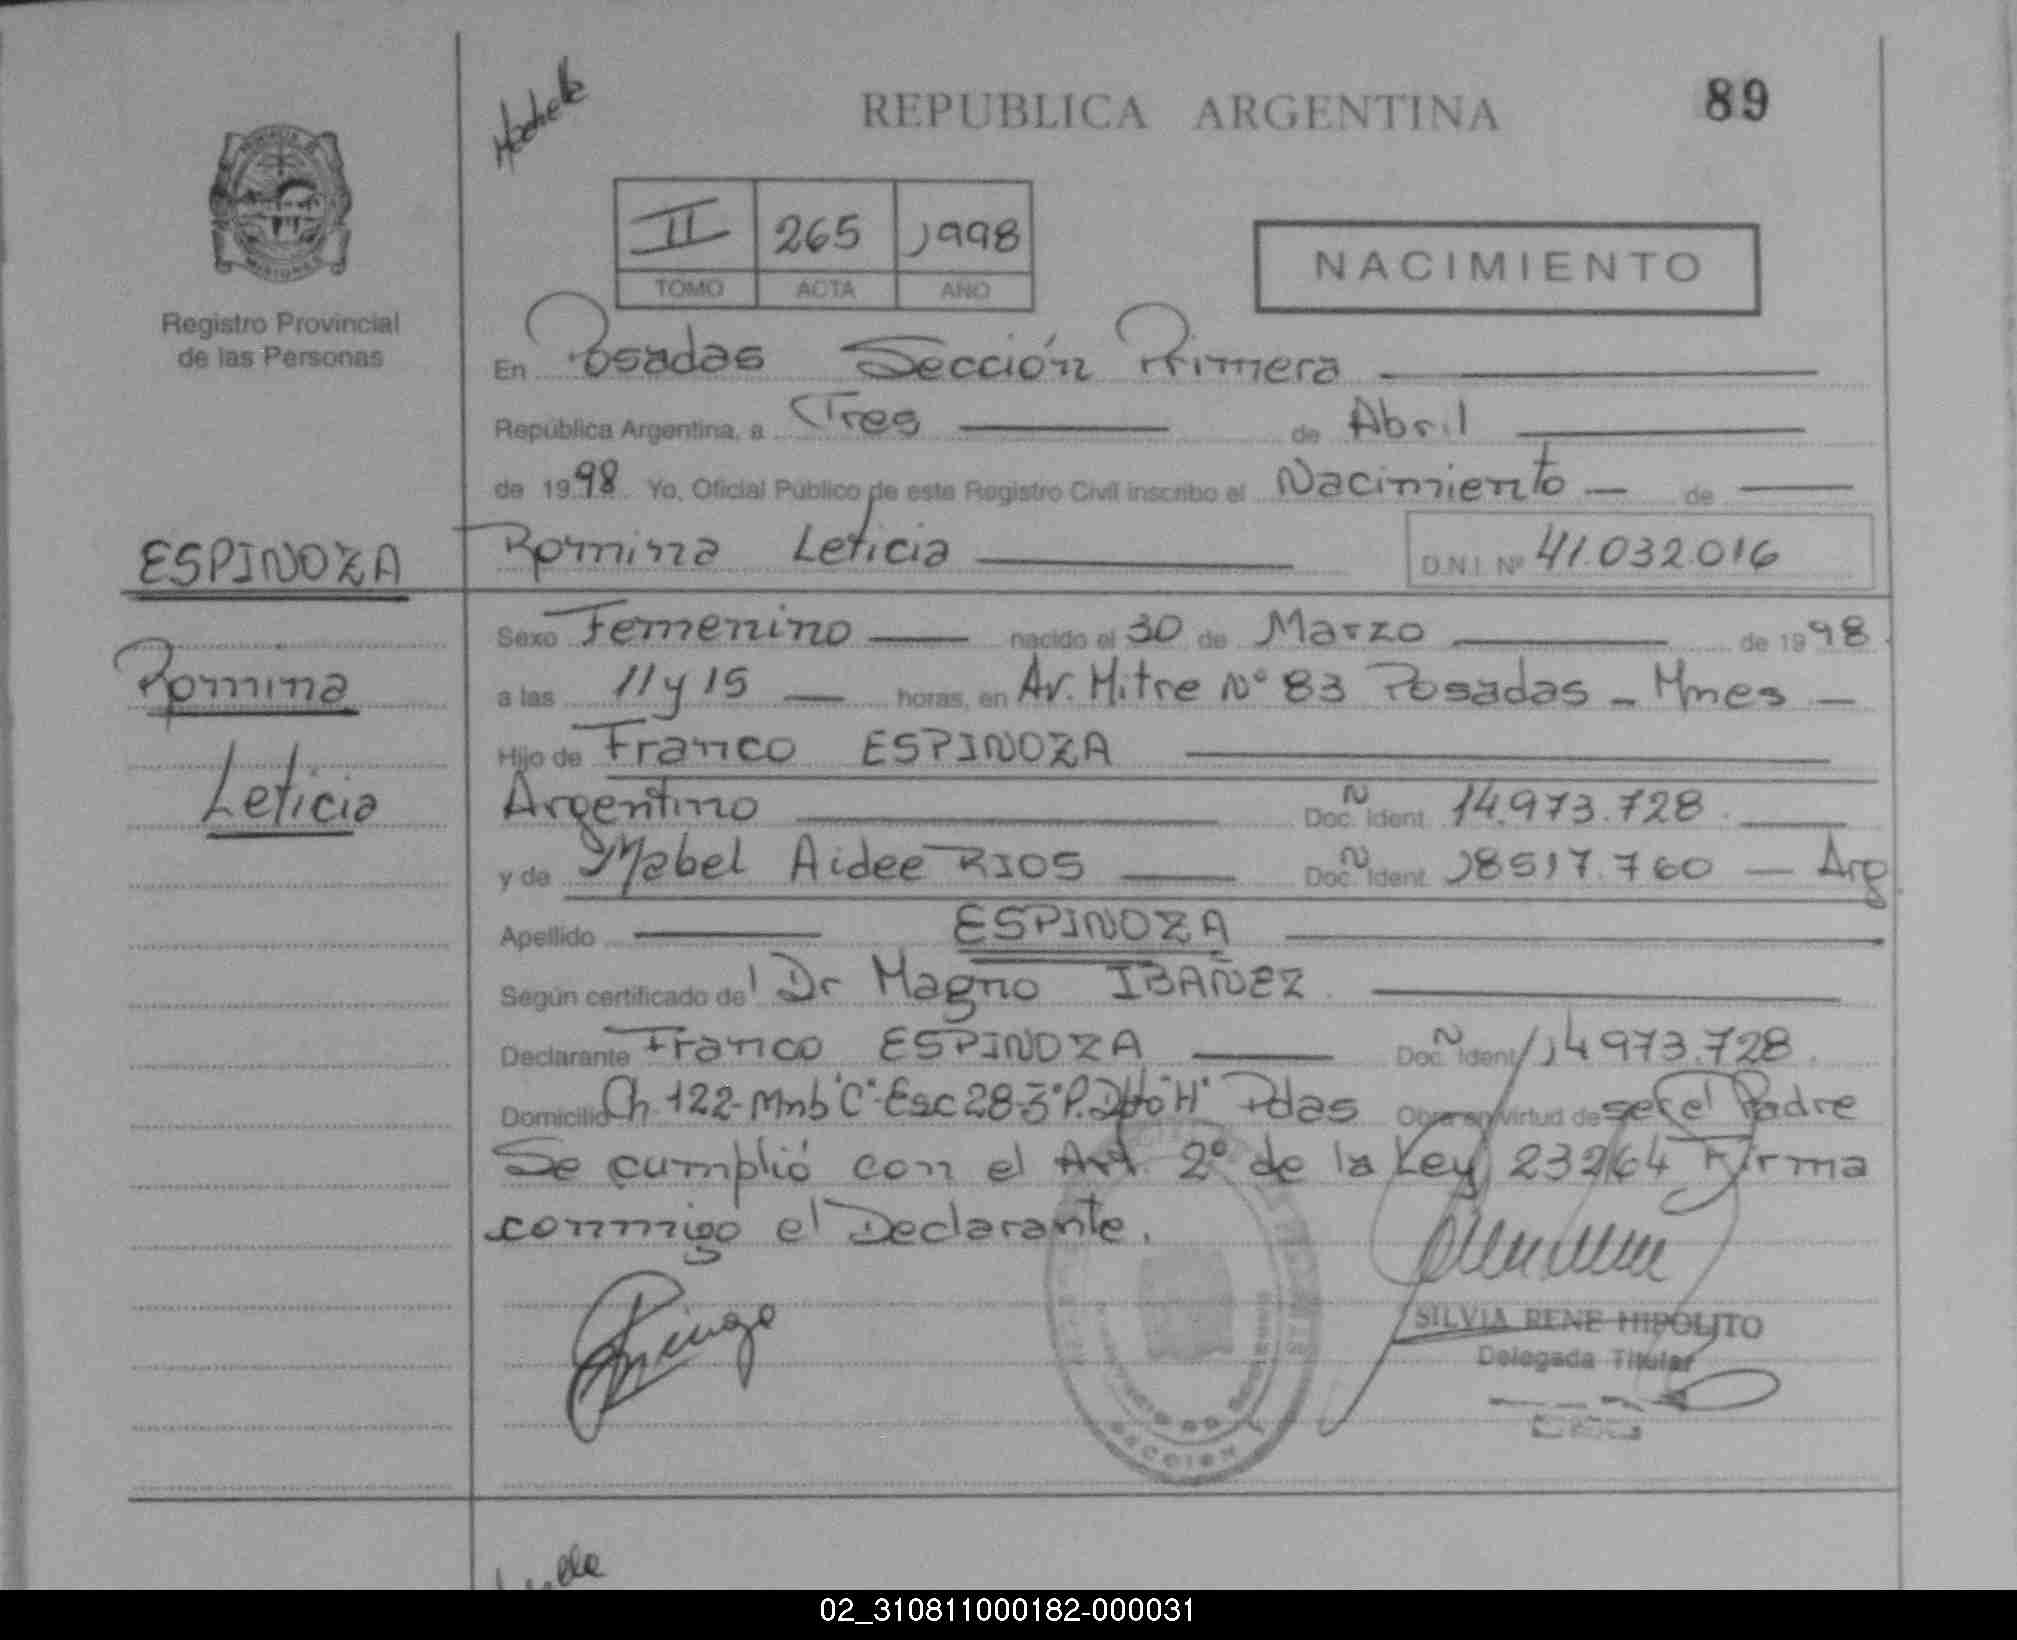 REPUBLICA ARGENTINA
89
II 265 1998
TOMO ACTA AÑO
NACIMIENTO
MISIONES
Registro Provincial
de las Personas
En Posadas Sección Primera
República Argentina, a Tres de Abril
de 1998 Yo, Oficial Público de este Registro Civil inscribo el Nacimiento de
Romina Leticia D.N.I. Nº 41.032.016
ESPINOZA
Romina
Leticia
Sexo Femenino nacido el 30 de Marzo de 1998
a las 11 y 15 horas, en Av. Mitre Nº 83 Posadas - Mnes -
Hijo de Franco ESPINOZA
Argentino Doc. Ident. 14.973.728
y de Mabel Aidee RIOS Doc. Ident. 18517.760 - Arg
Apellido ESPINOZA
Según certificado del Dr Magno IBAÑEZ
Declarante Franco ESPINOZA Doc. Ident. 14973.728
Domicilio Ch. 122- Mnb "C"- Esc 28-3º P. Dto "H" Pdas Obra en virtud de ser el Padre
Se cumplió con el Art. 2º de la Ley 23264 Firma
conmigo el Declarante.
SILVIA RENE HIPOLITO
Delegada Titular
SECCION
02_310811000182-000031